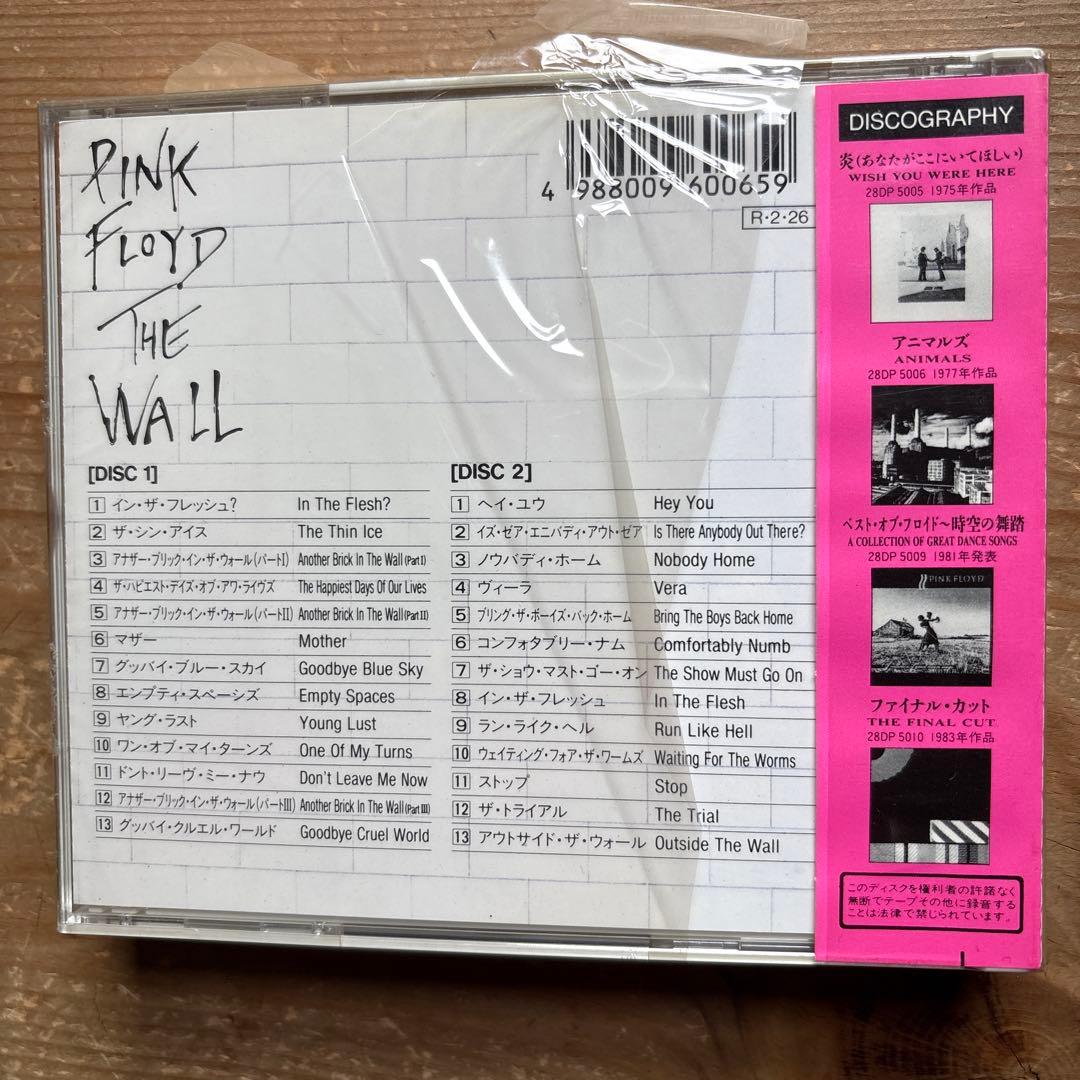 PINK
FLOYD
THE
WALL
4 988009 600659
R・2・26
[DISC 1]
1 イン・ザ・フレッシュ? In The Flesh?
2 ザ・シン・アイス The Thin Ice
3 アナザー・ブリック・イン・ザ・ウォール(パートI) Another Brick In The Wall (Part I)
4 ザ・ハピエスト・デイズ・オブ・アワ・ライヴズ The Happiest Days Of Our Lives
5 アナザー・ブリック・イン・ザ・ウォール(パートII) Another Brick In The Wall (Part II)
6 マザー Mother
7 グッバイ・ブルー・スカイ Goodbye Blue Sky
8 エンプティ・スペーシズ Empty Spaces
9 ヤング・ラスト Young Lust
10 ワン・オブ・マイ・ターンズ One Of My Turns
11 ドント・リーヴ・ミー・ナウ Don't Leave Me Now
12 アナザー・ブリック・イン・ザ・ウォール(パートIII) Another Brick In The Wall (Part III)
13 グッバイ・クルエル・ワールド Goodbye Cruel World
[DISC 2]
1 ヘイ・ユウ Hey You
2 イズ・ゼア・エニバディ・アウト・ゼア Is There Anybody Out There?
3 ノウバディ・ホーム Nobody Home
4 ヴィーラ Vera
5 ブリング・ザ・ボーイズ・バック・ホーム Bring The Boys Back Home
6 コンフォタブリー・ナム Comfortably Numb
7 ザ・ショウ・マスト・ゴー・オン The Show Must Go On
8 イン・ザ・フレッシュ In The Flesh
9 ラン・ライク・ヘル Run Like Hell
10 ウェイティング・フォア・ザ・ワームズ Waiting For The Worms
11 ストップ Stop
12 ザ・トライアル The Trial
13 アウトサイド・ザ・ウォール Outside The Wall
DISCOGRAPHY
炎(あなたがここにいてほしい)
WISH YOU WERE HERE
28DP 5005 1975年作品
アニマルズ
ANIMALS
28DP 5006 1977年作品
ベスト・オブ・フロイド〜時空の舞踏
A COLLECTION OF GREAT DANCE SONGS
28DP 5009 1981年発表
PINK FLOYD
ファイナル・カット
THE FINAL CUT
28DP 5010 1983年作品
このディスクを権利者の許諾なく
無断でテープその他に録音する
ことは法律で禁じられています。